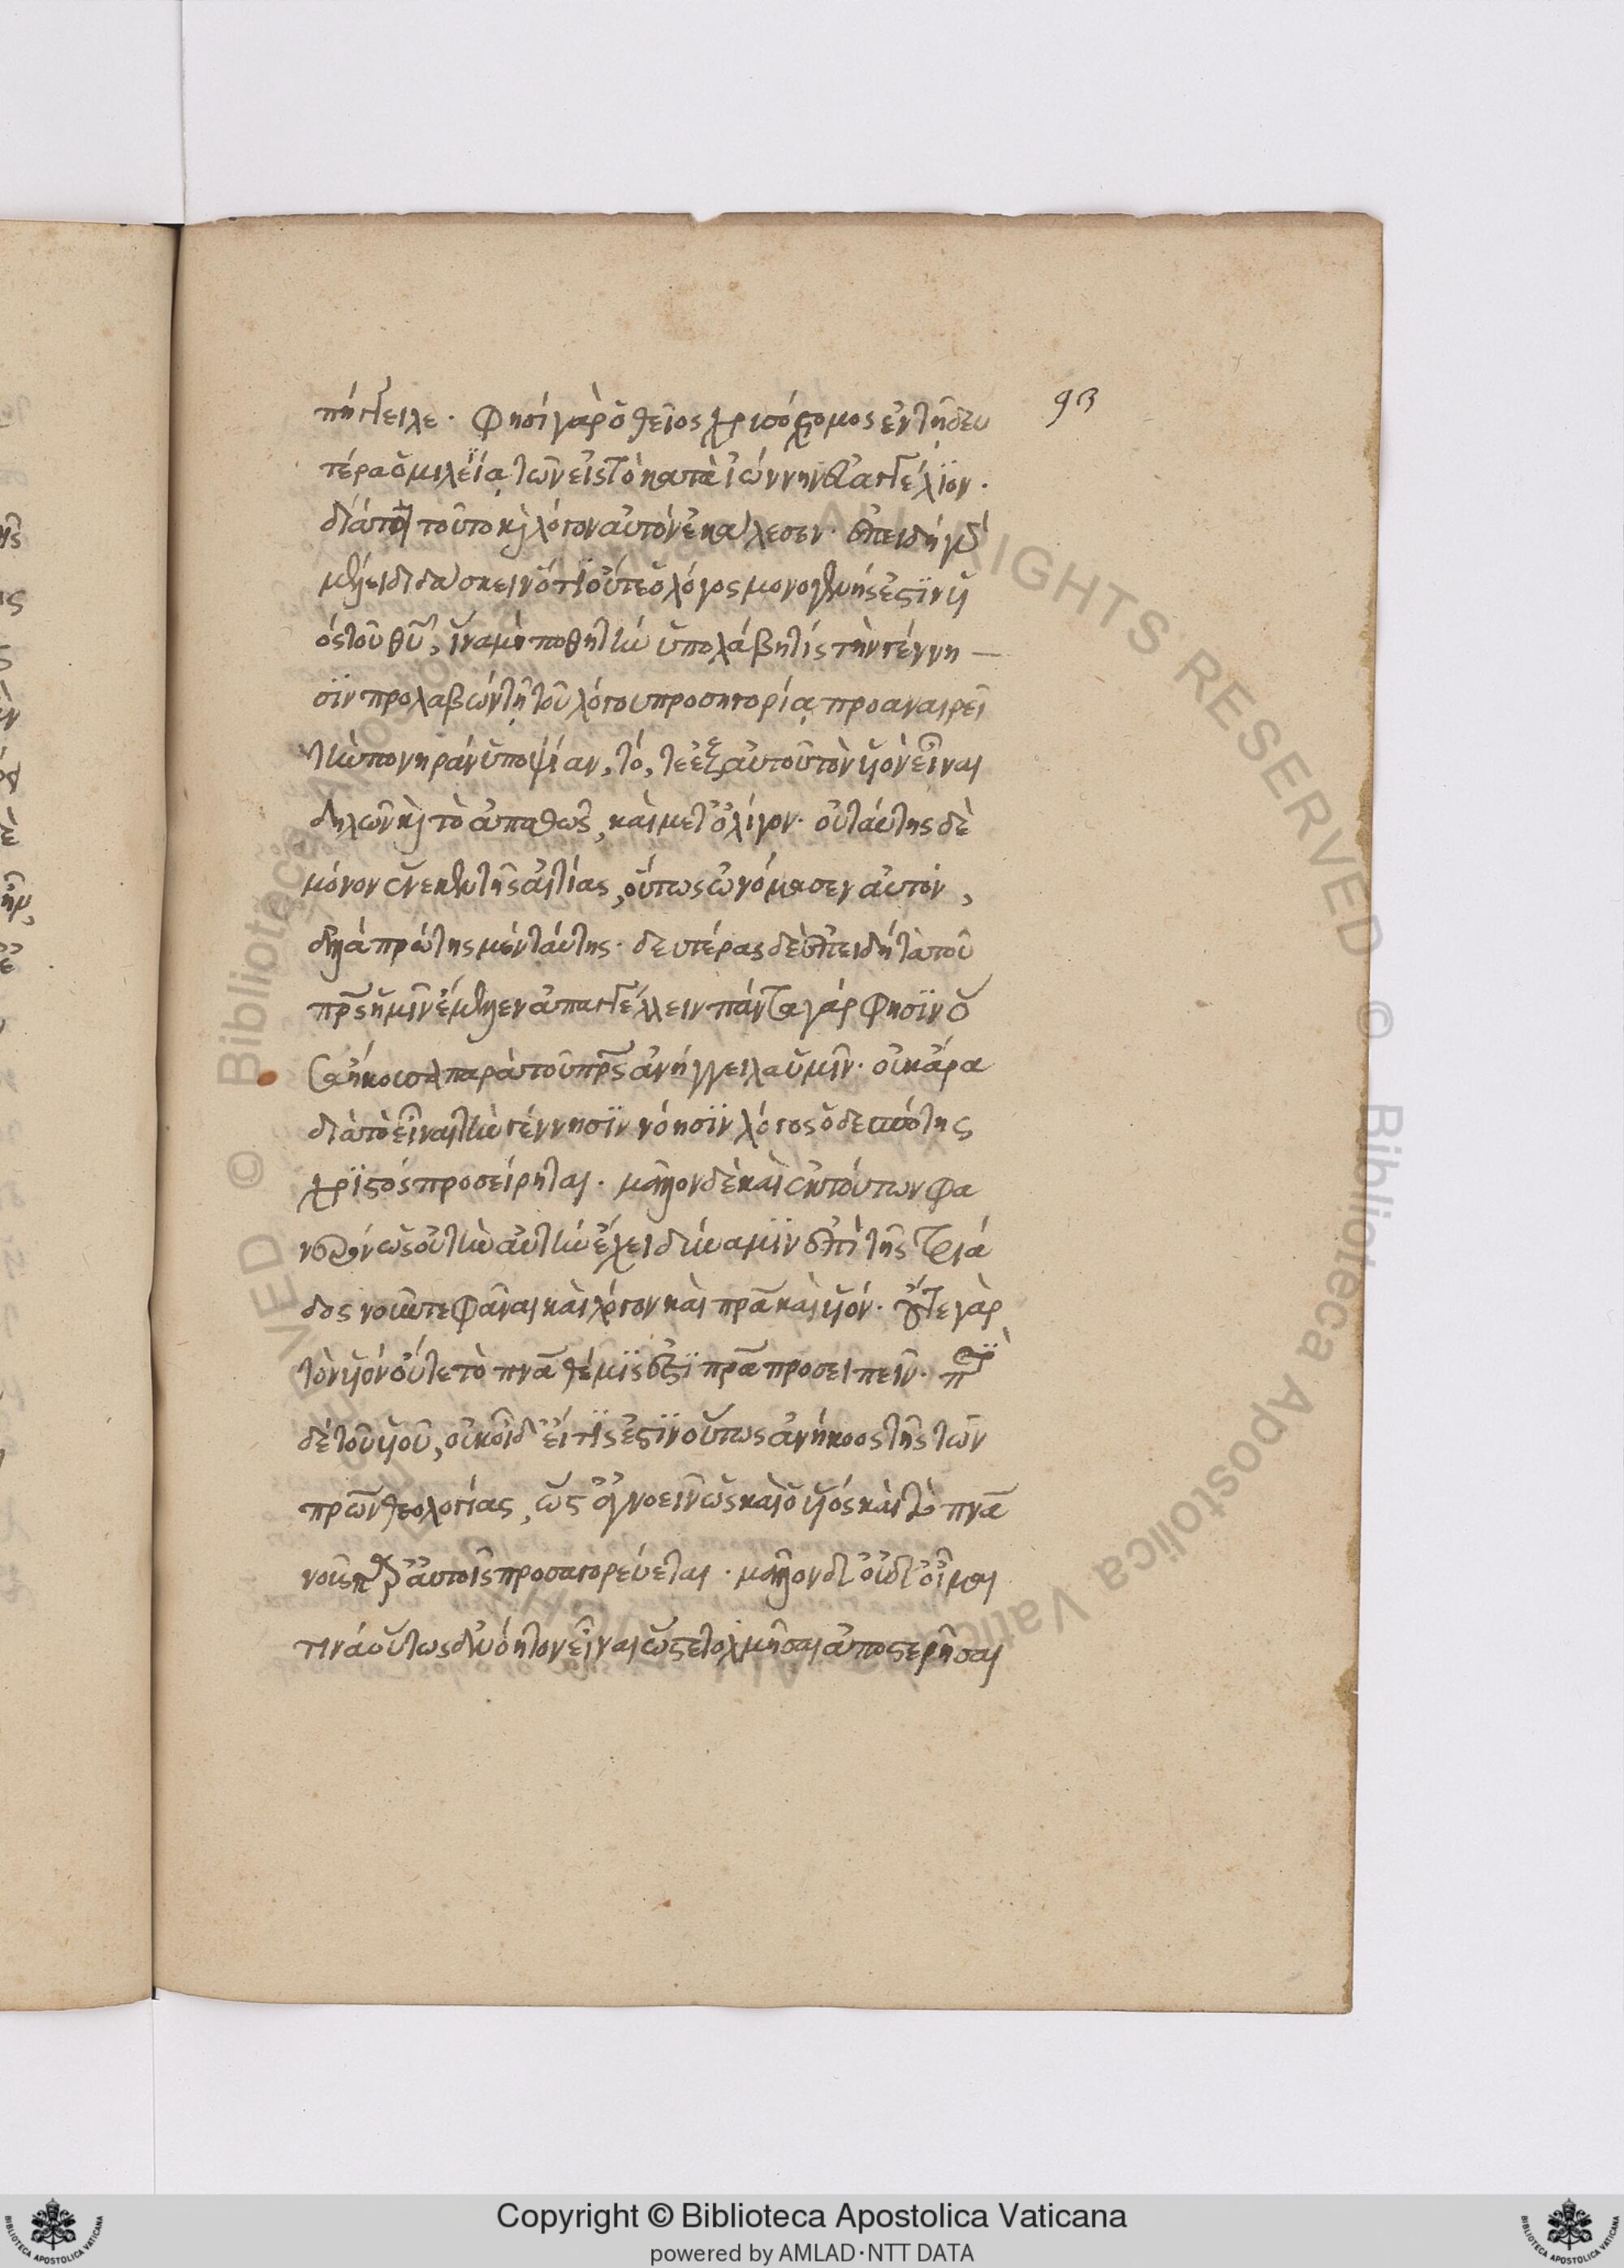 93
πήγγειλε. φησὶ γὰρ ὁ θεῖος χρισόστομος ἐν τῇ δευ
τέρα ὁμιλεία τῶν εἰς τὸ κατὰ ἰωάννην εὐαγγέλϊον.
διάτοι τοῦτο καὶ λόγον αὐτὸν ἐκάλεσεν. ἐπειδὴ γὰρ
μέλλει διδάσκειν ὅτι οὗτος ὁ λόγος μονογενής ἐστϊν υἱ
ός τοῦ θυ, ἵνα μὴ παθητὴν ὑπολάβη τίς τὴν γέννη
σϊν προλαβών τῇ τοῦ λόγου προσηγορία προαναιρεῖ
τὴν πονηρὰν ὑποψίαν, τό, τε ἐξ αὐτοῦ τὸν υἱὸν εἶναι
δηλῶν καὶ τὸ ἀπαθῶς, καὶ μετ' ὀλίγον. οὐ ταύτης δὲ
μόνον ἕνεκεν τῆς αἰτίας, οὕτως ὠνόμασεν αὐτόν,
ἀλλὰ πρώτης μέν ταύτης. δευτέρας δὲ ἐπειδὴ τὰ τοῦ
πρς ἡμῖν ἔμελλεν ἀπαγγέλλειν πάντα γάρ φησϊν ὅ
σα ἤκουσα παρὰ τοῦ πρς ἀνήγγειλα ὑμῖν. οὐκ ἄρα
διὰ τὸ εἶναι τὴν γέννησϊν νόησϊν λόγος ὁ δεσπότης
χρϊστός προσείρηται. μᾶλλον δὲ καὶ ἐκ τούτων φα
νερὸν ὡς οὐ τὴν αὐτὴν ἔχει δύναμϊν ἐπὶ τῆς τριά
δος νοῦν τε φᾶναι καὶ λόγον καὶ πρα καὶ υἱόν. οὔτε γὰρ
τὸν υἱόν οὔτε τὸ πνα θέμϊς ἐστϊ πρα προσειπεῖν.
δὲ τοῦ υἱοῦ, οὐκ οἶδ' εἴ τϊς ἐστϊν οὕτως ἀνήκοος τῆς τῶν
πρων θεολογίας, ὥς ἀγνοεῖν ὡς καὶ ὁ υἱός καὶ τὸ πνα
νοῦς παρ' αὐτοῖς προσαγορεύεται. μᾶλλον δ' οὐδ' οἶμαι
τινά οὕτως ἀνόητον εἶναι ὥστε τολμῆσαι ἀποστερῆσαι
Copyright © Biblioteca Apostolica Vaticana
powered by AMLAD·NTT DATA